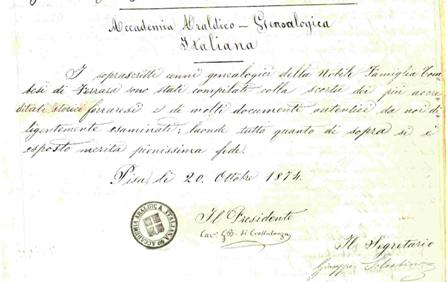 Accademia Araldico – Genealogica
Italiana
I soprascritti cenni genealogici della Nobile Famiglia Com-
besi di Ferrara sono stati compilati colla scorta dei più accre-
ditati storici ferraresi e di molti documenti autentici da noi di-
ligentemente esaminati; laonde tutto quanto di sopra si è
esposto merita pienissima fede.
Pisa li 20. Ottobre 1874.
Il Presidente
Cav. G. B. di Crollalanza
Il Segretario
ACCADEMIA ARALDICA ITALIANA